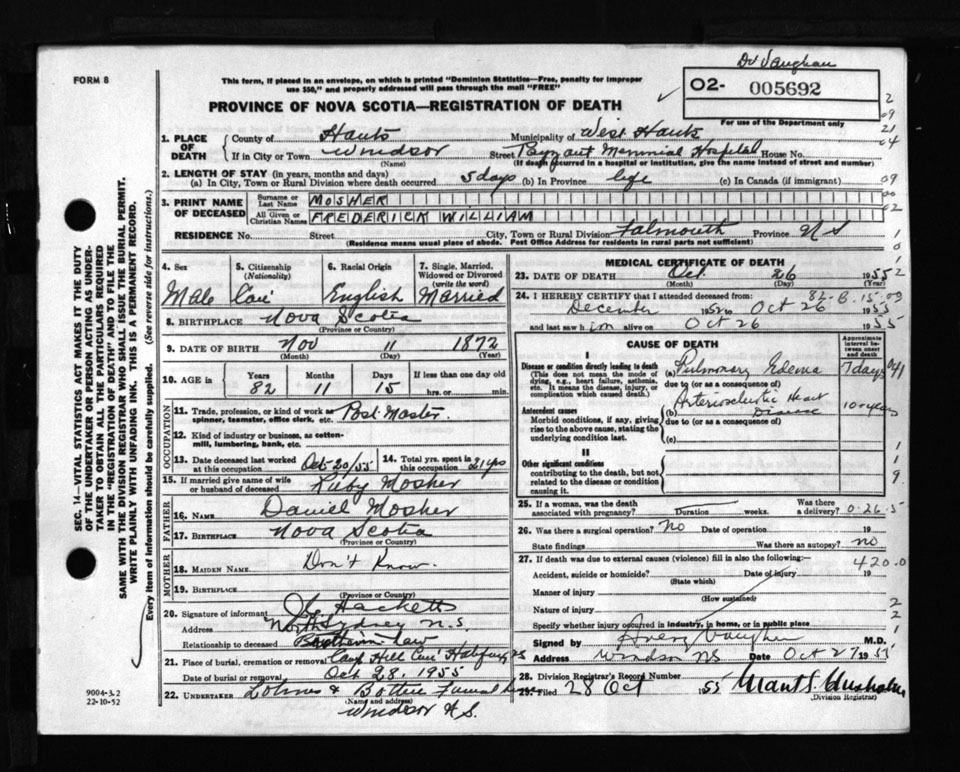 Dr Vaughan
FORM 8
This form, if placed in an envelope, on which is printed "Dominion Statistics—Free, penalty for improper
use $50," and properly addressed will pass through the mail "FREE"
O2- 005692
For use of the Department only
PROVINCE OF NOVA SCOTIA—REGISTRATION OF DEATH
1. PLACE OF DEATH
County of Hants Municipality of West Hants
If in City or Town Windsor Street Payzant Memorial Hospital House No.
(Name) (If death occurred in a hospital or institution, give the name instead of street and number)
2. LENGTH OF STAY (in years, months and days)
(a) In City, Town or Rural Division where death occurred 5 days (b) In Province life (c) In Canada (if immigrant)
3. PRINT NAME OF DECEASED
Surname or Last Name MOSHER
All Given or Christian Names FREDERICK WILLIAM
RESIDENCE No. Street City, Town or Rural Division Falmouth Province N S
(Residence means usual place of abode. Post Office Address for residents in rural parts not sufficient)
4. Sex Male
5. Citizenship (Nationality) Can
6. Racial Origin English
7. Single, Married, Widowed or Divorced (write the word) Married
8. BIRTHPLACE Nova Scotia
(Province or Country)
9. DATE OF BIRTH Nov 11 1872
(Month) (Day) (Year)
10. AGE in Years 82 Months 11 Days 15 If less than one day
hrs. or min.
OCCUPATION
11. Trade, profession, or kind of work as spinner, teamster, office clerk, etc. Post Master
12. Kind of industry or business, as cotton-mill, lumbering, bank, etc.
13. Date deceased last worked at this occupation Oct 20/55
14. Total yrs. spent in this occupation 21 yrs
15. If married give name of wife or husband of deceased Ruby Mosher
FATHER
16. NAME Daniel Mosher
17. BIRTHPLACE Nova Scotia
(Province or Country)
MOTHER
18. MAIDEN NAME Don't Know.
19. BIRTHPLACE
(Province or Country)
20. Signature of informant Hackett
Address North Sydney N.S.
Relationship to deceased law
21. Place of burial, cremation or removal Camp Hill Cem Halifax NS
Date of burial or removal Oct 28, 1955
22. UNDERTAKER Lohnes & Funeral
(Name and address)
Windsor N.S.
9004-3.2
22-10-52
SEC. 14—VITAL STATISTICS ACT MAKES IT THE DUTY
OF THE UNDERTAKER OR PERSON ACTING AS UNDER-
TAKER TO OBTAIN ALL THE PARTICULARS REQUIRED
IN THE "REGISTRATION OF DEATH" AND TO FILE THE
SAME WITH THE DIVISION REGISTRAR WHO SHALL ISSUE THE BURIAL PERMIT.
WRITE PLAINLY WITH UNFADING INK. THIS IS A PERMANENT RECORD.
Every item of information should be carefully supplied. (See reverse side for instructions.)
MEDICAL CERTIFICATE OF DEATH
23. DATE OF DEATH Oct. 26 1955
(Month) (Day) (Year)
82-B-15-03
24. I HEREBY CERTIFY that I attended deceased from:
December 1952 to Oct 26 1955
and last saw him alive on Oct 26 1955
CAUSE OF DEATH
Approximate interval between onset and death
I
Disease or condition directly leading to death
(This does not mean the mode of dying, e.g., heart failure, asthenia, etc. It means the disease, injury, or complication which caused death.)
(a) Pulmonary Edema 7 days
due to (or as a consequence of)
Antecedent causes
Morbid conditions, if any, giving rise to the above cause, stating the underlying condition last.
(b) Arteriosclerotic Heart Disease 10 years
due to (or as a consequence of)
(c)
II
Other significant conditions
contributing to the death, but not related to the disease or condition causing it.
25. If a woman, was the death associated with pregnancy? Duration weeks. Was there a delivery?
0-26-5
26. Was there a surgical operation? No Date of operation 19
State findings Was there an autopsy? no
27. If death was due to external causes (violence) fill in also the following:—
420.0
Accident, suicide or homicide? Date of injury 19
(State which)
Manner of injury
(How sustained)
Nature of injury
Specify whether injury occurred in industry, in home, or in public place
Signed by Avery Vaughan M.D.
Address Windsor NS Date Oct 27 1955
28. Division Registrar's Record Number
29. Filed 28 Oct 1955
(Division Registrar)